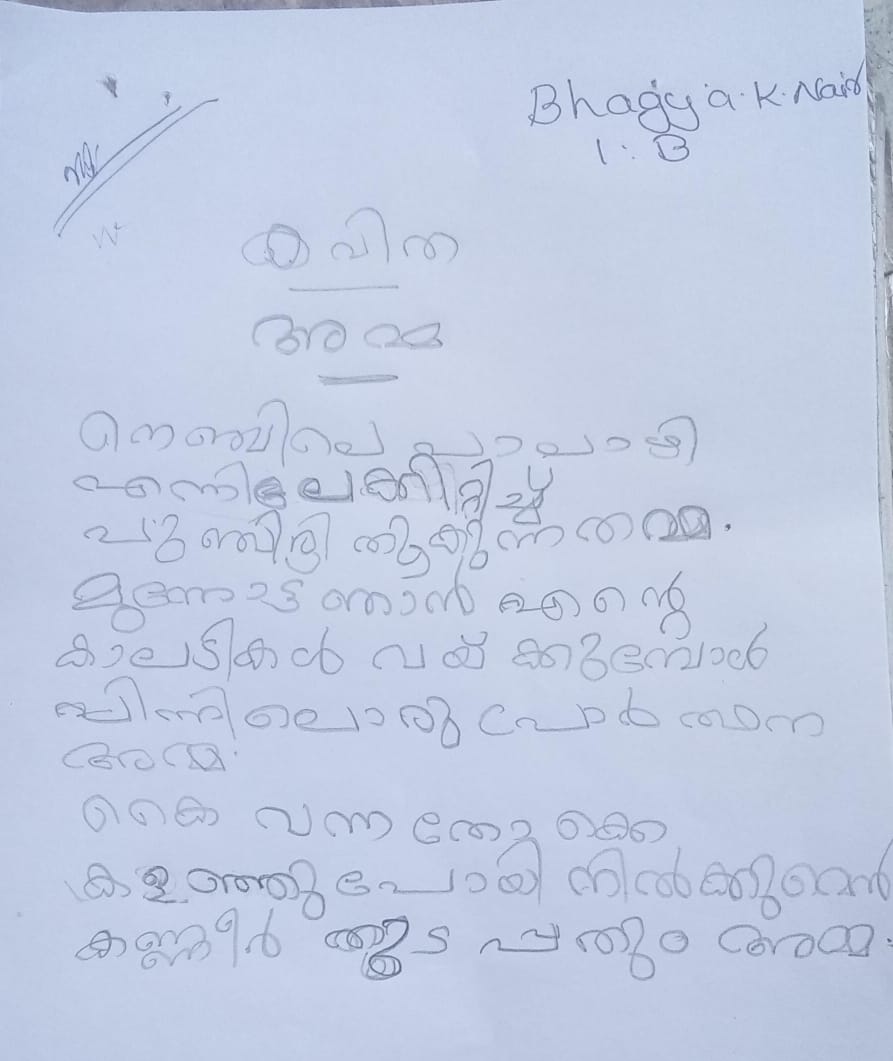 Bhagya.K.Nair
1:B
കവിത
അമ്മ
നെഞ്ചിലെ പാലാഴി
എന്നിലേക്കിറ്റിച്ച്
പുഞ്ചിരി തൂകുന്നതമ്മ.
മുന്നോട്ട് ഞാൻ എന്റെ
കാലടികൾ വയ് ക്കുമ്പോൾ
പിന്നിലൊരു പ്രാർത്ഥന
അമ്മ.
കൈ വന്നതോക്കെ
കളഞ്ഞു പോയി നിൽക്കുമെൻ
കണ്ണീർ തുടപ്പതും അമ്മ.